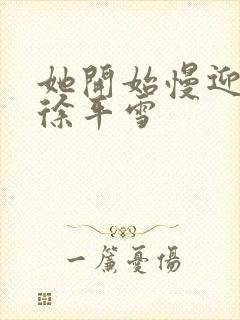 她開始慢迎
徐平雪
一簾憂傷